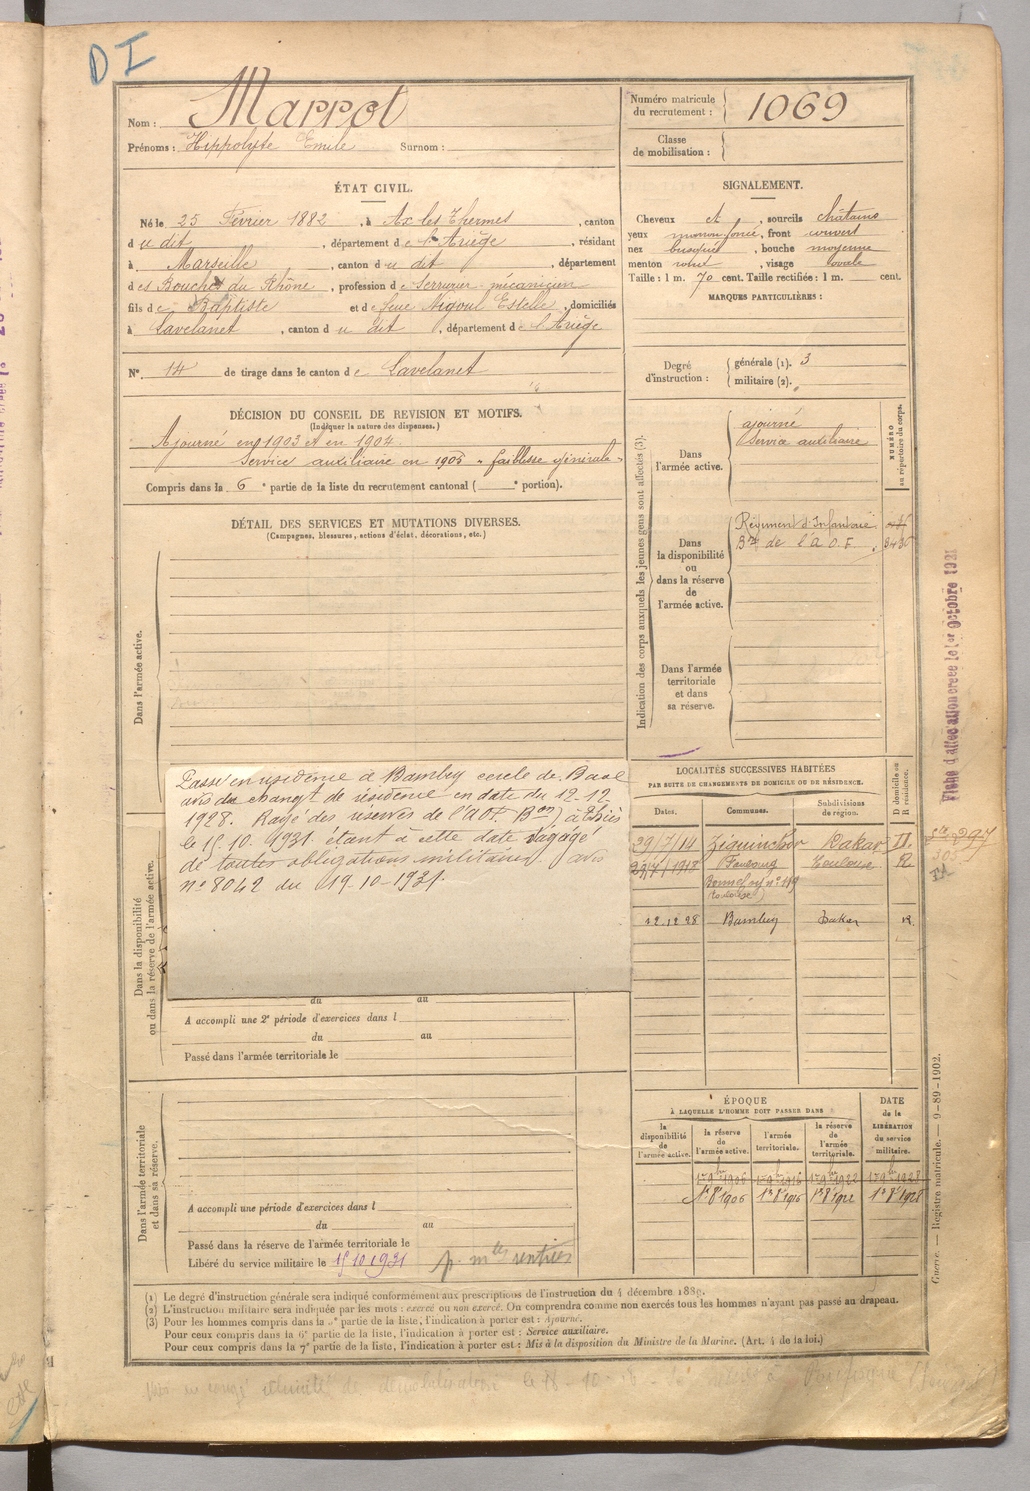 DI
Nom : Marrot
Prénoms : Hippolyte Emile Surnom :
Numéro matricule du recrutement : 1069
Classe de mobilisation :
ÉTAT CIVIL.
Né le 25 Février 1882, à Ax les Thermes, canton
du dit, département de l'Ariège, résidant
à Marseille, canton du dit, département
des Bouches du Rhône, profession de Serrurier mécanicien
fils de Baptiste et de feue Nigoul Estelle, domiciliés
à Lavelanet, canton du dit, département de l'Ariège
N° 14 de tirage dans le canton de Lavelanet
SIGNALEMENT.
Cheveux et, sourcils châtains
yeux marron foncé, front couvert
nez busqué, bouche moyenne
menton rond, visage ovale
Taille : 1 m. 70 cent. Taille rectifiée : 1 m. cent.
MARQUES PARTICULIÈRES :
Degré d'instruction : générale (1). 3
militaire (2).
DÉCISION DU CONSEIL DE REVISION ET MOTIFS.
(Indiquer la nature des dispenses.)
Ajourné en 1903 et en 1904.
Service auxiliaire en 1905 - faiblesse générale
Compris dans la 6e partie de la liste du recrutement cantonal ( e portion).
DÉTAIL DES SERVICES ET MUTATIONS DIVERSES.
(Campagnes, blessures, actions d'éclat, décorations, etc.)
Dans l'armée active.
Indication des corps auxquels les jeunes gens sont affectés (3).
NUMÉRO au répertoire du corps.
Dans l'armée active.
ajourné
Service auxiliaire
Dans la disponibilité ou dans la réserve de l'armée active.
Régiment d'Infanterie
Bon de l'A O F.
Dans l'armée territoriale et dans sa réserve.
Fiche d'affectation créée le 1er Octobre 1921
Passé en résidence à Bambey cercle de Baol
avis de changt de résidence en date du 12-12-
1928. Rayé des réserves de l'AOF Bon) à Thiès
le 15.10.1931 étant à cette date dégagé
de toutes obligations militaires. avis
n° 8042 du 19-10-1931.
Dans la disponibilité ou dans la réserve de l'armée active.
du au
A accompli une 2e période d'exercices dans l
du au
Passé dans l'armée territoriale le
LOCALITÉS SUCCESSIVES HABITÉES
PAR SUITE DE CHANGEMENTS DE DOMICILE OU DE RÉSIDENCE.
Dates. Communes. Subdivisions de région. D domicile ou R résidence.
29/7/14 Ziguinchor Dakar
1918 Toulouse R
Toulouse)
12.12.28 Bambey Dakar R.
Dans l'armée territoriale et dans sa réserve.
A accompli une période d'exercices dans l
du au
Passé dans la réserve de l'armée territoriale le
Libéré du service militaire le 15 10 1931
ÉPOQUE
À LAQUELLE L'HOMME DOIT PASSER DANS
la disponibilité de l'armée active. la réserve de l'armée active. l'armée territoriale. la réserve de l'armée territoriale. DATE de la LIBÉRATION du service militaire.
1er 9bre 1906 1er 9bre 1916 1er 9bre 1922 1er 9bre 1928
1er 8bre 1906 1er 8bre 1916 1er 8bre 1922 1er 8bre 1928
Guerre. — Registre matricule. — 9-89-1902.
(1) Le degré d'instruction générale sera indiqué conformément aux prescriptions de l'instruction du 4 décembre 1889.
(2) L'instruction militaire sera indiquée par les mots : exercé ou non exercé. On comprendra comme non exercés tous les hommes n'ayant pas passé au drapeau.
(3) Pour les hommes compris dans la 5e partie de la liste, l'indication à porter est : Ajourné.
Pour ceux compris dans la 6e partie de la liste, l'indication à porter est : Service auxiliaire.
Pour ceux compris dans la 7e partie de la liste, l'indication à porter est : Mis à la disposition du Ministre de la Marine. (Art. 4 de la loi.)